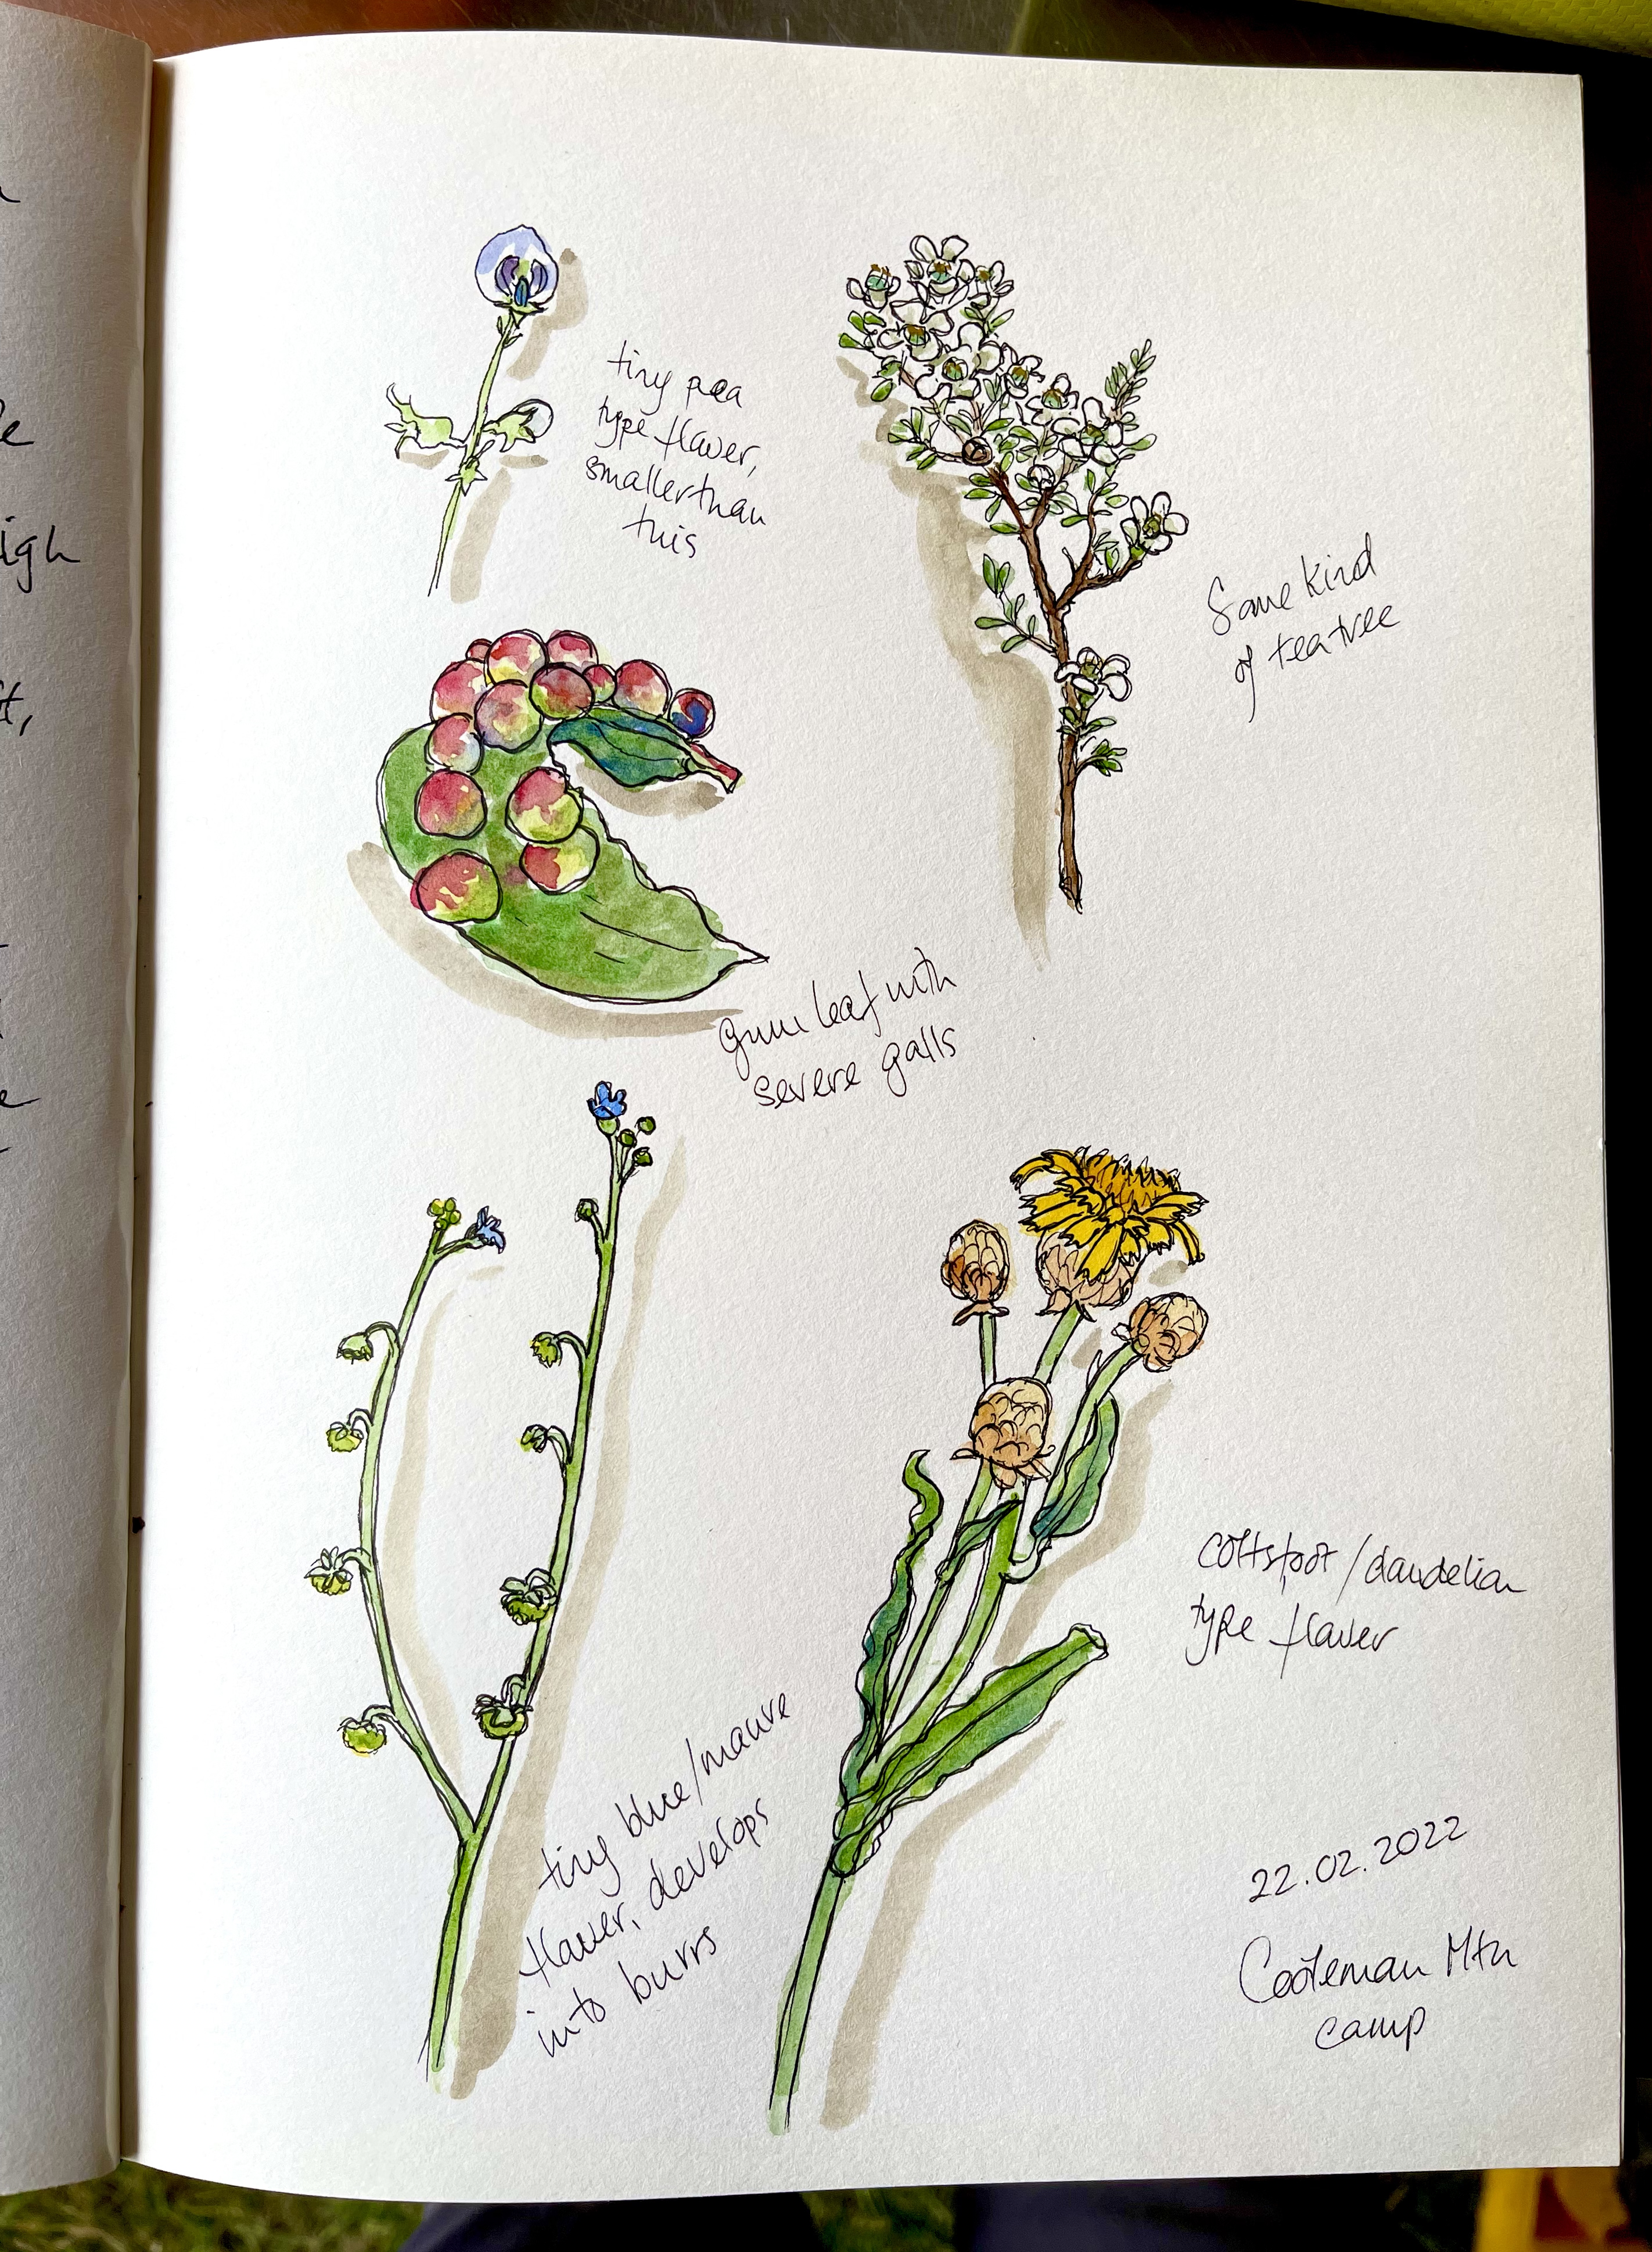 tiny pea
type flower,
smaller than
this
Some kind
of tea tree
gum leaf with
severe galls
coltsfoot/dandelion
type flower
tiny blue/mauve
flower, develops
into burrs
22.02.2022
Cooleman Mtn
camp
igh